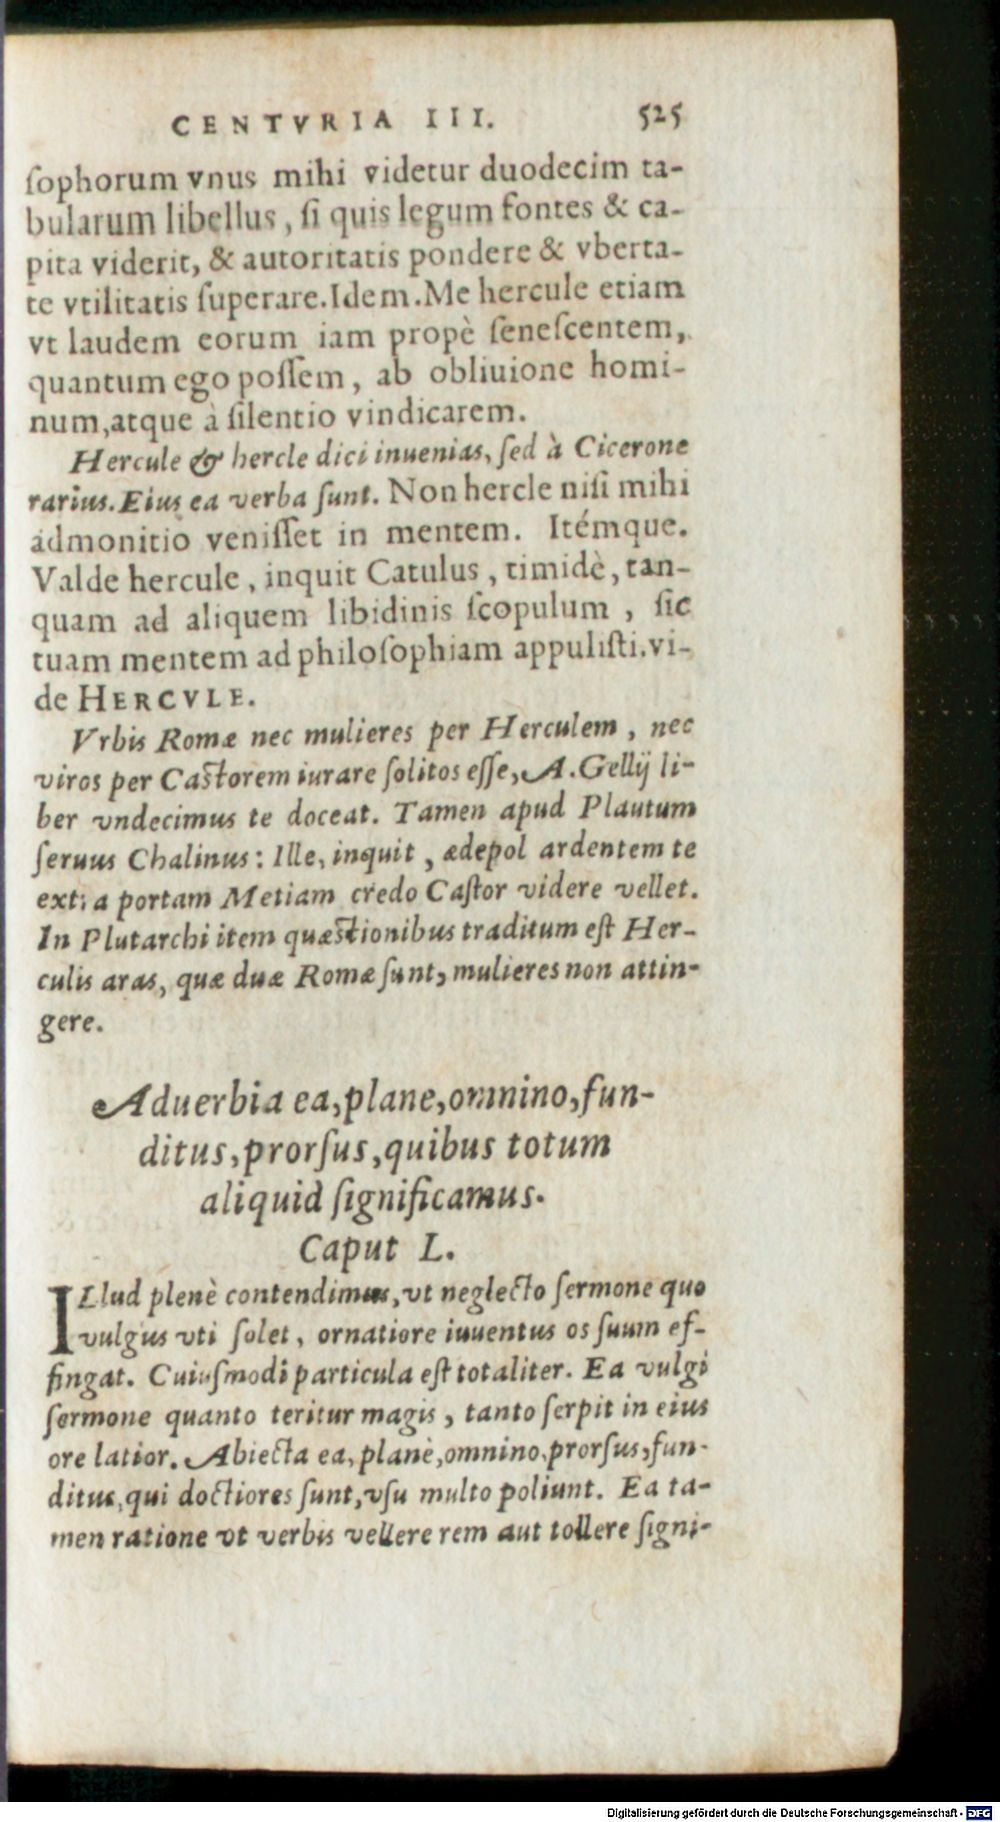 CENTVRIA III. 525
ſophorum vnus mihi videtur duodecim ta-
bularum libellus, ſi quis legum fontes & ca-
pita viderit, & autoritatis pondere & vberta-
te vtilitatis ſuperare. Idem. Me hercule etiam
vt laudem eorum iam propè ſeneſcentem,
quantum ego poſſem, ab obliuione homi-
num, atque à ſilentio vindicarem.
Hercule & hercle dici inuenias, ſed à Cicerone
rarius. Eius ea verba ſunt. Non hercle niſi mihi
admonitio veniſſet in mentem. Itémque.
Valde hercule, inquit Catulus, timidè, tan-
quam ad aliquem libidinis ſcopulum, ſic
tuam mentem ad philoſophiam appuliſti. vi-
de HERCVLE.
Vrbis Romæ nec mulieres per Herculem, nec
viros per Caſtorem iurare ſolitos eſſe, A. Gellij li-
ber vndecimus te doceat. Tamen apud Plautum
ſeruus Chalinus: Ille, inquit, ædepol ardentem te
extra portam Metiam credo Caſtor videre vellet.
In Plutarchi item quæſtionibus traditum eſt Her-
culis aras, quæ duæ Romæ ſunt, mulieres non attin-
gere.
Aduerbia ea, plane, omnino, fun-
ditus, prorſus, quibus totum
aliquid ſignificamus.
Caput L.
ILlud plenè contendimus, vt neglecto ſermone quo
vulgus vti ſolet, ornatiore iuuentus os ſuum ef-
fingat. Cuiuſmodi particula eſt totaliter. Ea vulgi
ſermone quanto teritur magis, tanto ſerpit in eius
ore latior. Abiecta ea, planè, omnino, prorſus, fun-
ditus, qui doctiores ſunt, vſu multo poliunt. Ea ta-
men ratione vt verbis vellere rem aut tollere ſigni-
Digitalisierung gefördert durch die Deutsche Forschungsgemeinschaft - DFG